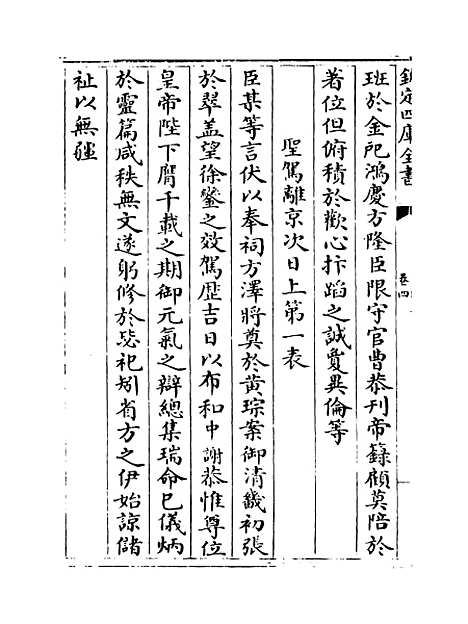 欽定四庫全書
卷四
班於金祀鴻慶方隆臣限守官曹恭刋帝籙顧莫陪於
著位但俯積於歡心抃蹈之誠實異倫等
聖駕離京次日上第一表
臣某等言伏以奉祠方澤將奠於黄琮案御清畿初張
於翠盖望徐鑾之效駕歴吉日以布和中謝恭惟尊位
皇帝陛下膺千載之期御元氣之辯總集瑞命已儀炳
於靈篇咸秩無文遂躬修於毖祀矧省方之伊始諒儲
祉以無疆